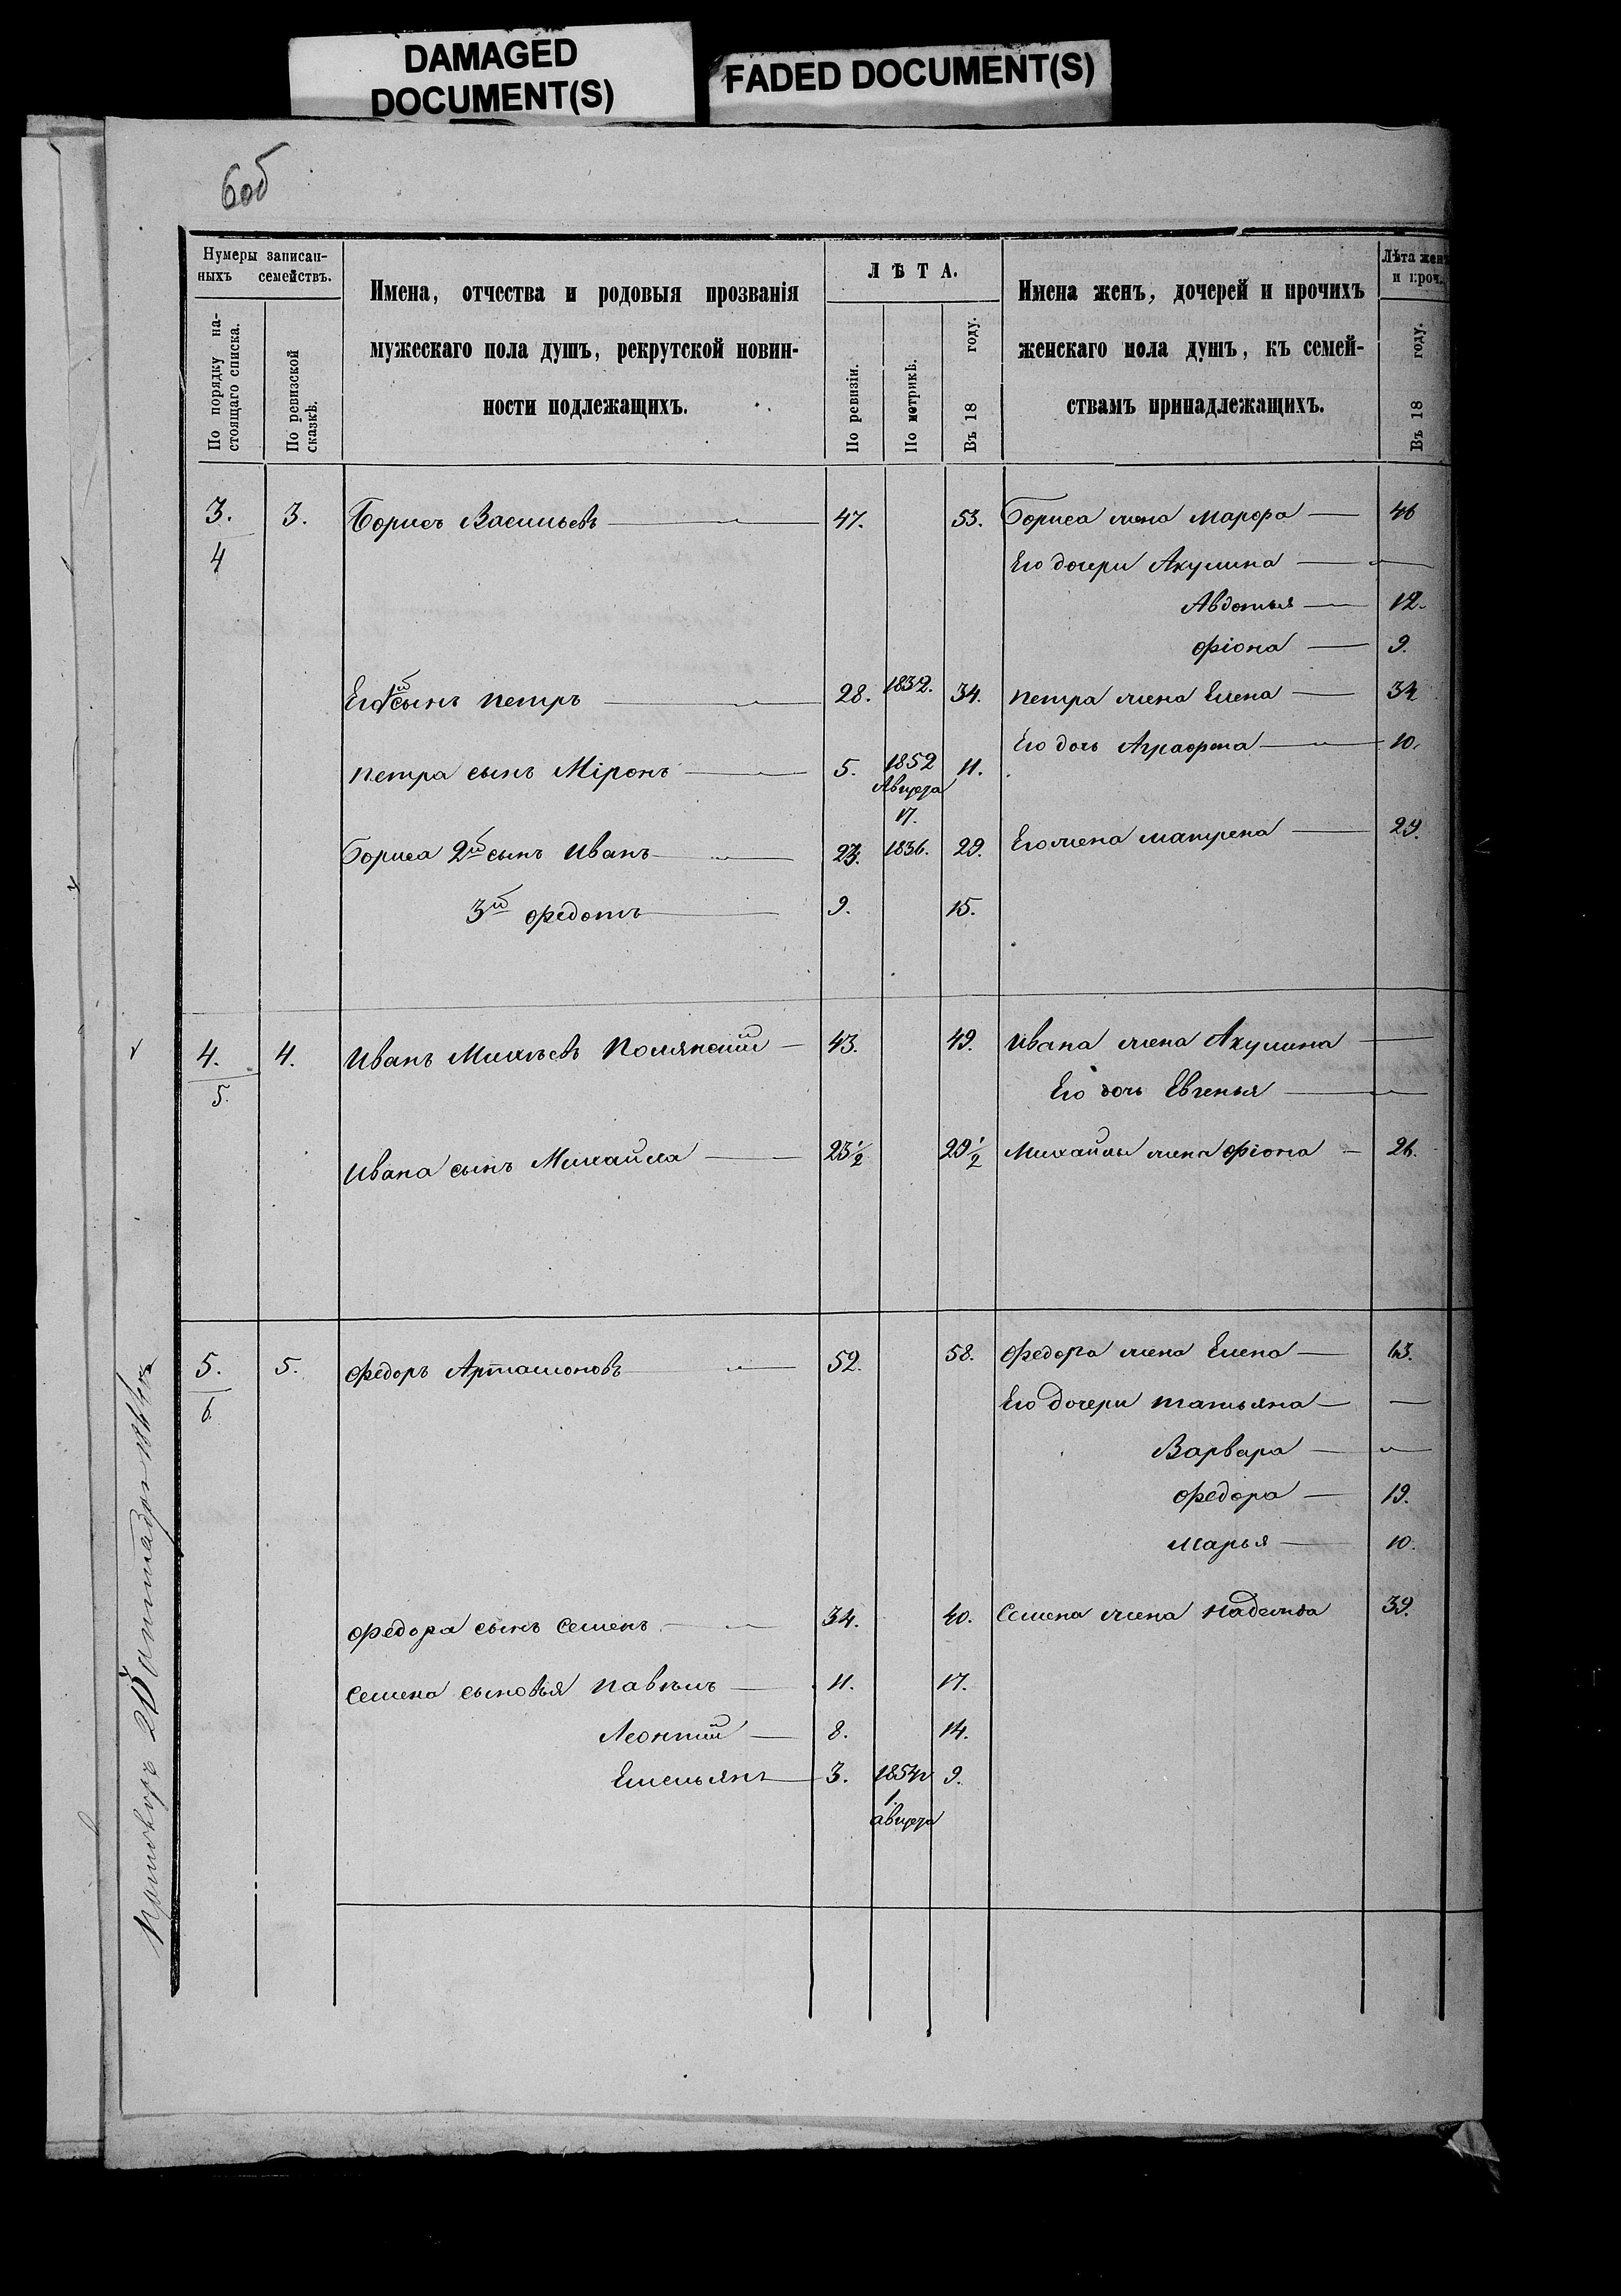 DAMAGED
DOCUMENT(S)
FADED DOCUMENT(S)
6об
Нумеры записан-
ныхъ семействъ.
По порядку на-
стоящаго списка.
По ревизской
сказкѣ.
Имена, отчества и родовыя прозванія
мужескаго пола душъ, рекрутской повин-
ности подлежащихъ.
ЛѢТА.
По ревизіи.
По метрикѣ.
Въ 18 году.
Имена женъ, дочерей и прочихъ
женскаго пола душъ, къ семей-
ствамъ принадлежащихъ.
Лѣта женъ
и проч.
Въ 18 году.
3. 3. Борисъ Васильевъ 47. 53. Бориса жена Марфа 46
4 Его дочери Акулина
Авдотья 12.
Фіона 9.
Его 1й сынъ Петръ 28. 1832. 34. Петра жена Елена 34
Его дочь Аграфена 10.
Петра сынъ Міронъ 5. 1852 11.
Августа
17.
Бориса 2й сынъ Иванъ 23. 1836. 29. Его жена Матрена 29.
3й Федотъ 9. 15.
4. 4. Иванъ Полянский 43. 49. Ивана жена Акулина
5. Его дочь Евгенья
Ивана сынъ Михайла 23 1/2 29 1/2 Михайлы жена Фіона 26.
5. 5. Федоръ Артамоновъ 52. 58. Федора жена Елена
6. Его дочери Татьяна
Варвара
Федора 19.
Марья 10.
Федора сынъ Семенъ 34. 40. Семена жена Надежда 39.
Семена сыновья Павелъ 11. 17.
Леонтий 8. 14.
Емельянъ 3. 1854 9.
1.
августа